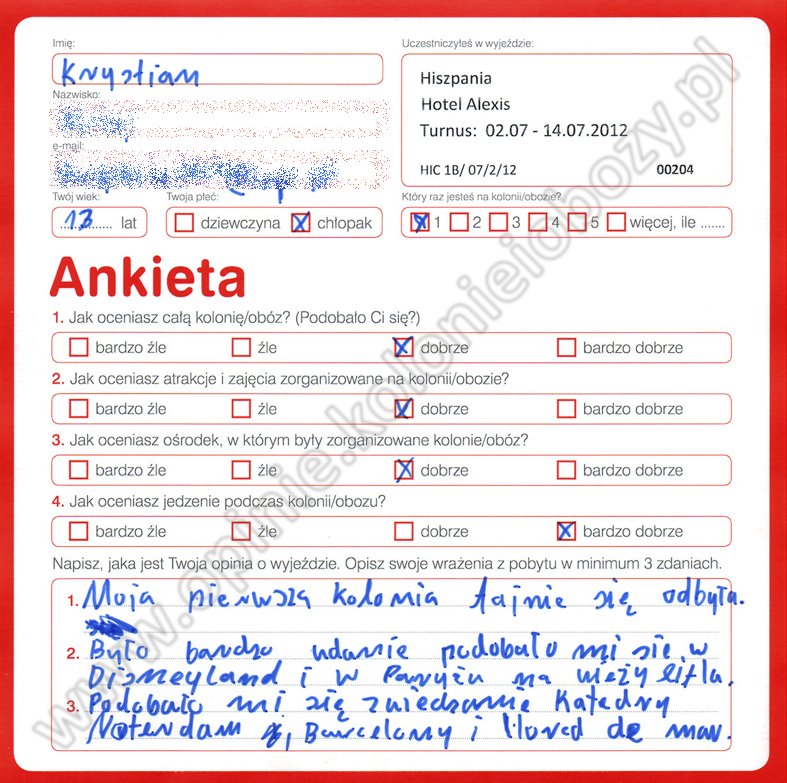 Imię:
Krystian
Uczestniczyłeś w wyjeździe:
Hiszpania
Hotel Alexis
Turnus: 02.07 - 14.07.2012
HIC 1B/ 07/2/12 00204
Nazwisko:
e-mail:
Twój wiek: Twoja płeć: Który raz jesteś na kolonii/obozie?
13 lat dziewczyna chłopak 1 2 3 4 5 więcej, ile .......
Ankieta
1. Jak oceniasz całą kolonię/obóz? (Podobało Ci się?)
bardzo źle źle dobrze bardzo dobrze
2. Jak oceniasz atrakcje i zajęcia zorganizowane na kolonii/obozie?
bardzo źle źle dobrze bardzo dobrze
3. Jak oceniasz ośrodek, w którym były zorganizowane kolonie/obóz?
bardzo źle źle dobrze bardzo dobrze
4. Jak oceniasz jedzenie podczas kolonii/obozu?
bardzo źle źle dobrze bardzo dobrze
Napisz, jaka jest Twoja opinia o wyjeździe. Opisz swoje wrażenia z pobytu w minimum 3 zdaniach.
1. Moja pierwszą kolonia fajnie się odbyła.
2. Było bardzo udanie podobało mi się w
Disneyland i w Paryżu na wieży eifla.
3. Podobało mi się zwiedzanie Katedry
Noterdam , Barcelony i llored de mar.
www.opinie.kolonieiobozy.pl